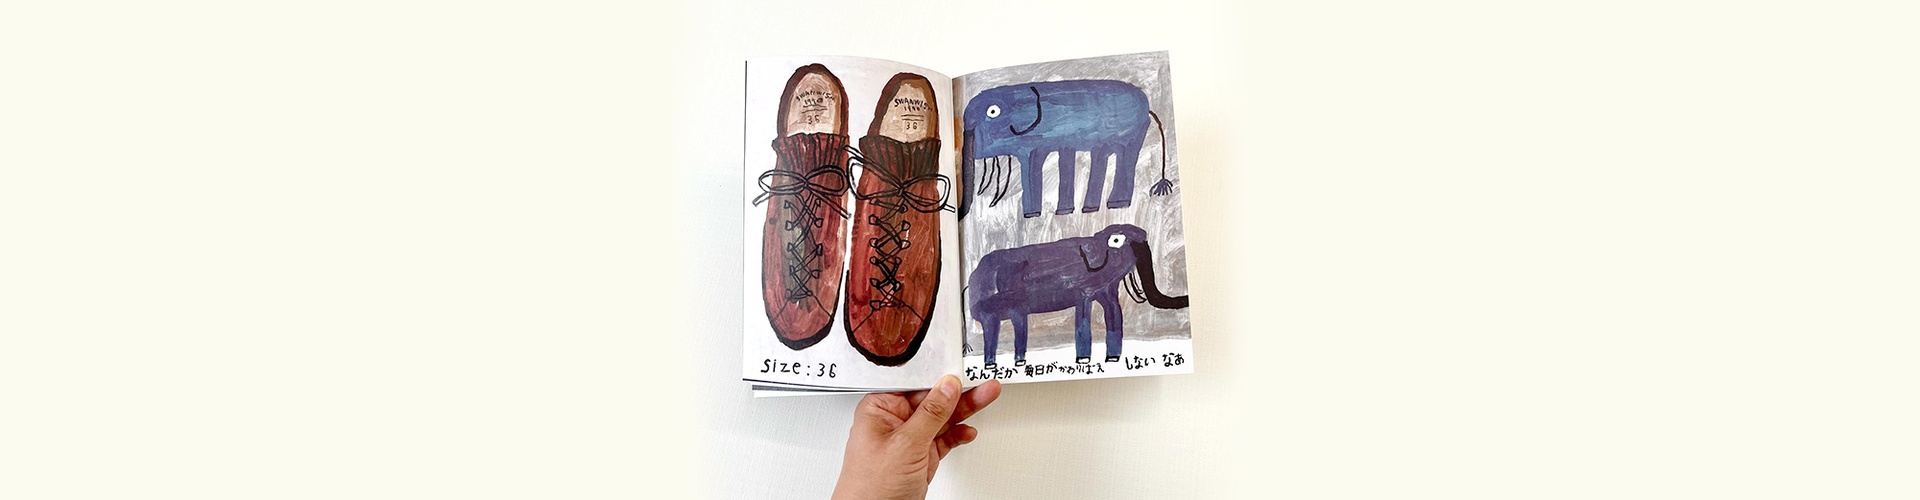 SWANWISH
1990
36
size: 36
なんだか 毎日が かわりばえ しない なあ